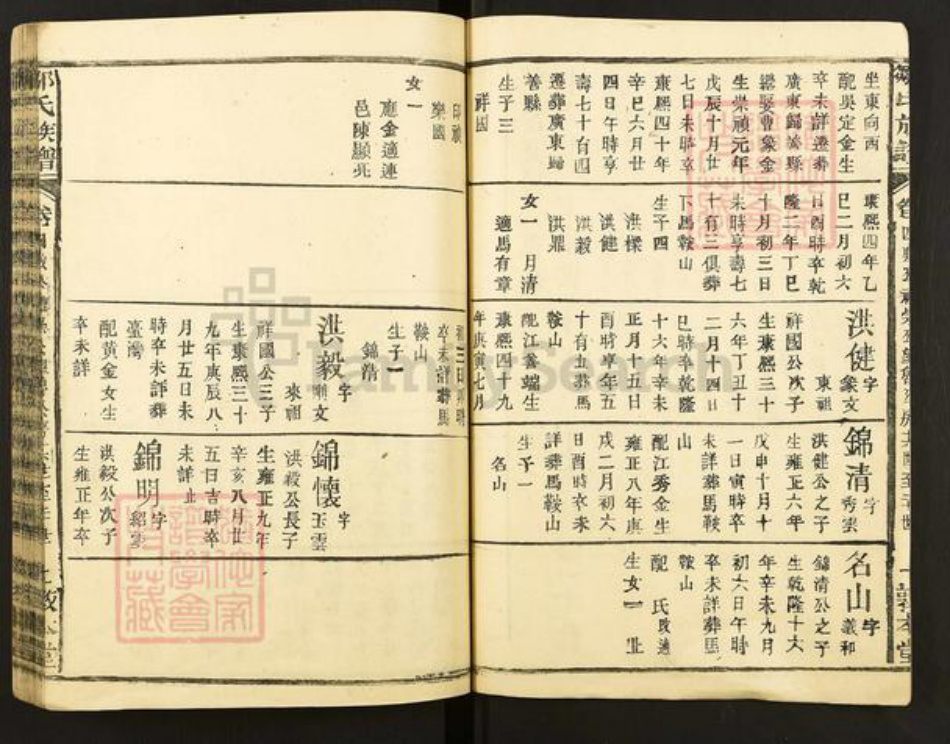 坐東向西
配吳定金生
卒未詳遷葬
廣東歸善縣
繼娶曹象金
生崇禎元年
戊辰十月廿
七日未時卒
康熙四十年
辛巳六月廿
四日午時享
壽七十有四
遷葬廣東歸
善縣
生子三
祥國
康熙四年乙
巳二月初六
日酉時卒乾
隆二年丁巳
十月初三日
未時享壽七
十有三俱葬
下馬鞍山
生子四
洪樑
洪健
洪毅
洪鼎
女一 月清
適馬有章
洪健字
象文
東祖
祥國公次子
生康熙三十
六年丁丑十
二月十四日
巳時卒乾隆
十六年辛未
正月十五日
酉時享年五
十有五葬馬
鞍山
配江養端生
康熙四十九
年庚寅七月
錦清字
秀雲
洪健公之子
生雍正六年
戊申十月十
一日寅時卒
未詳葬馬鞍
山
配江秀金生
雍正八年庚
戌二月初六
日酉時卒未
詳葬馬鞍山
生子一
名山
名山字
義和
錦清公之子
生乾隆十六
年辛未九月
初六日午時
卒未詳葬馬
鞍山
配 氏改適
生女一 止
敦本堂
印禎
樂國
女一
應金適連
邑陳顯亮
卒未詳葬馬
鞍山
生子一
錦清
洪毅字
剛文
來祖
祥國公三子
生康熙三十
九年庚辰八
月廿五日未
時卒未詳葬
臺灣
配黃金女生
卒未詳
錦懷字
玉雲
洪毅公長子
生雍正九年
辛亥八月廿
五日吉時卒
未詳止
錦明字
紹雲
洪毅公次子
生雍正年卒
鄒氏族譜